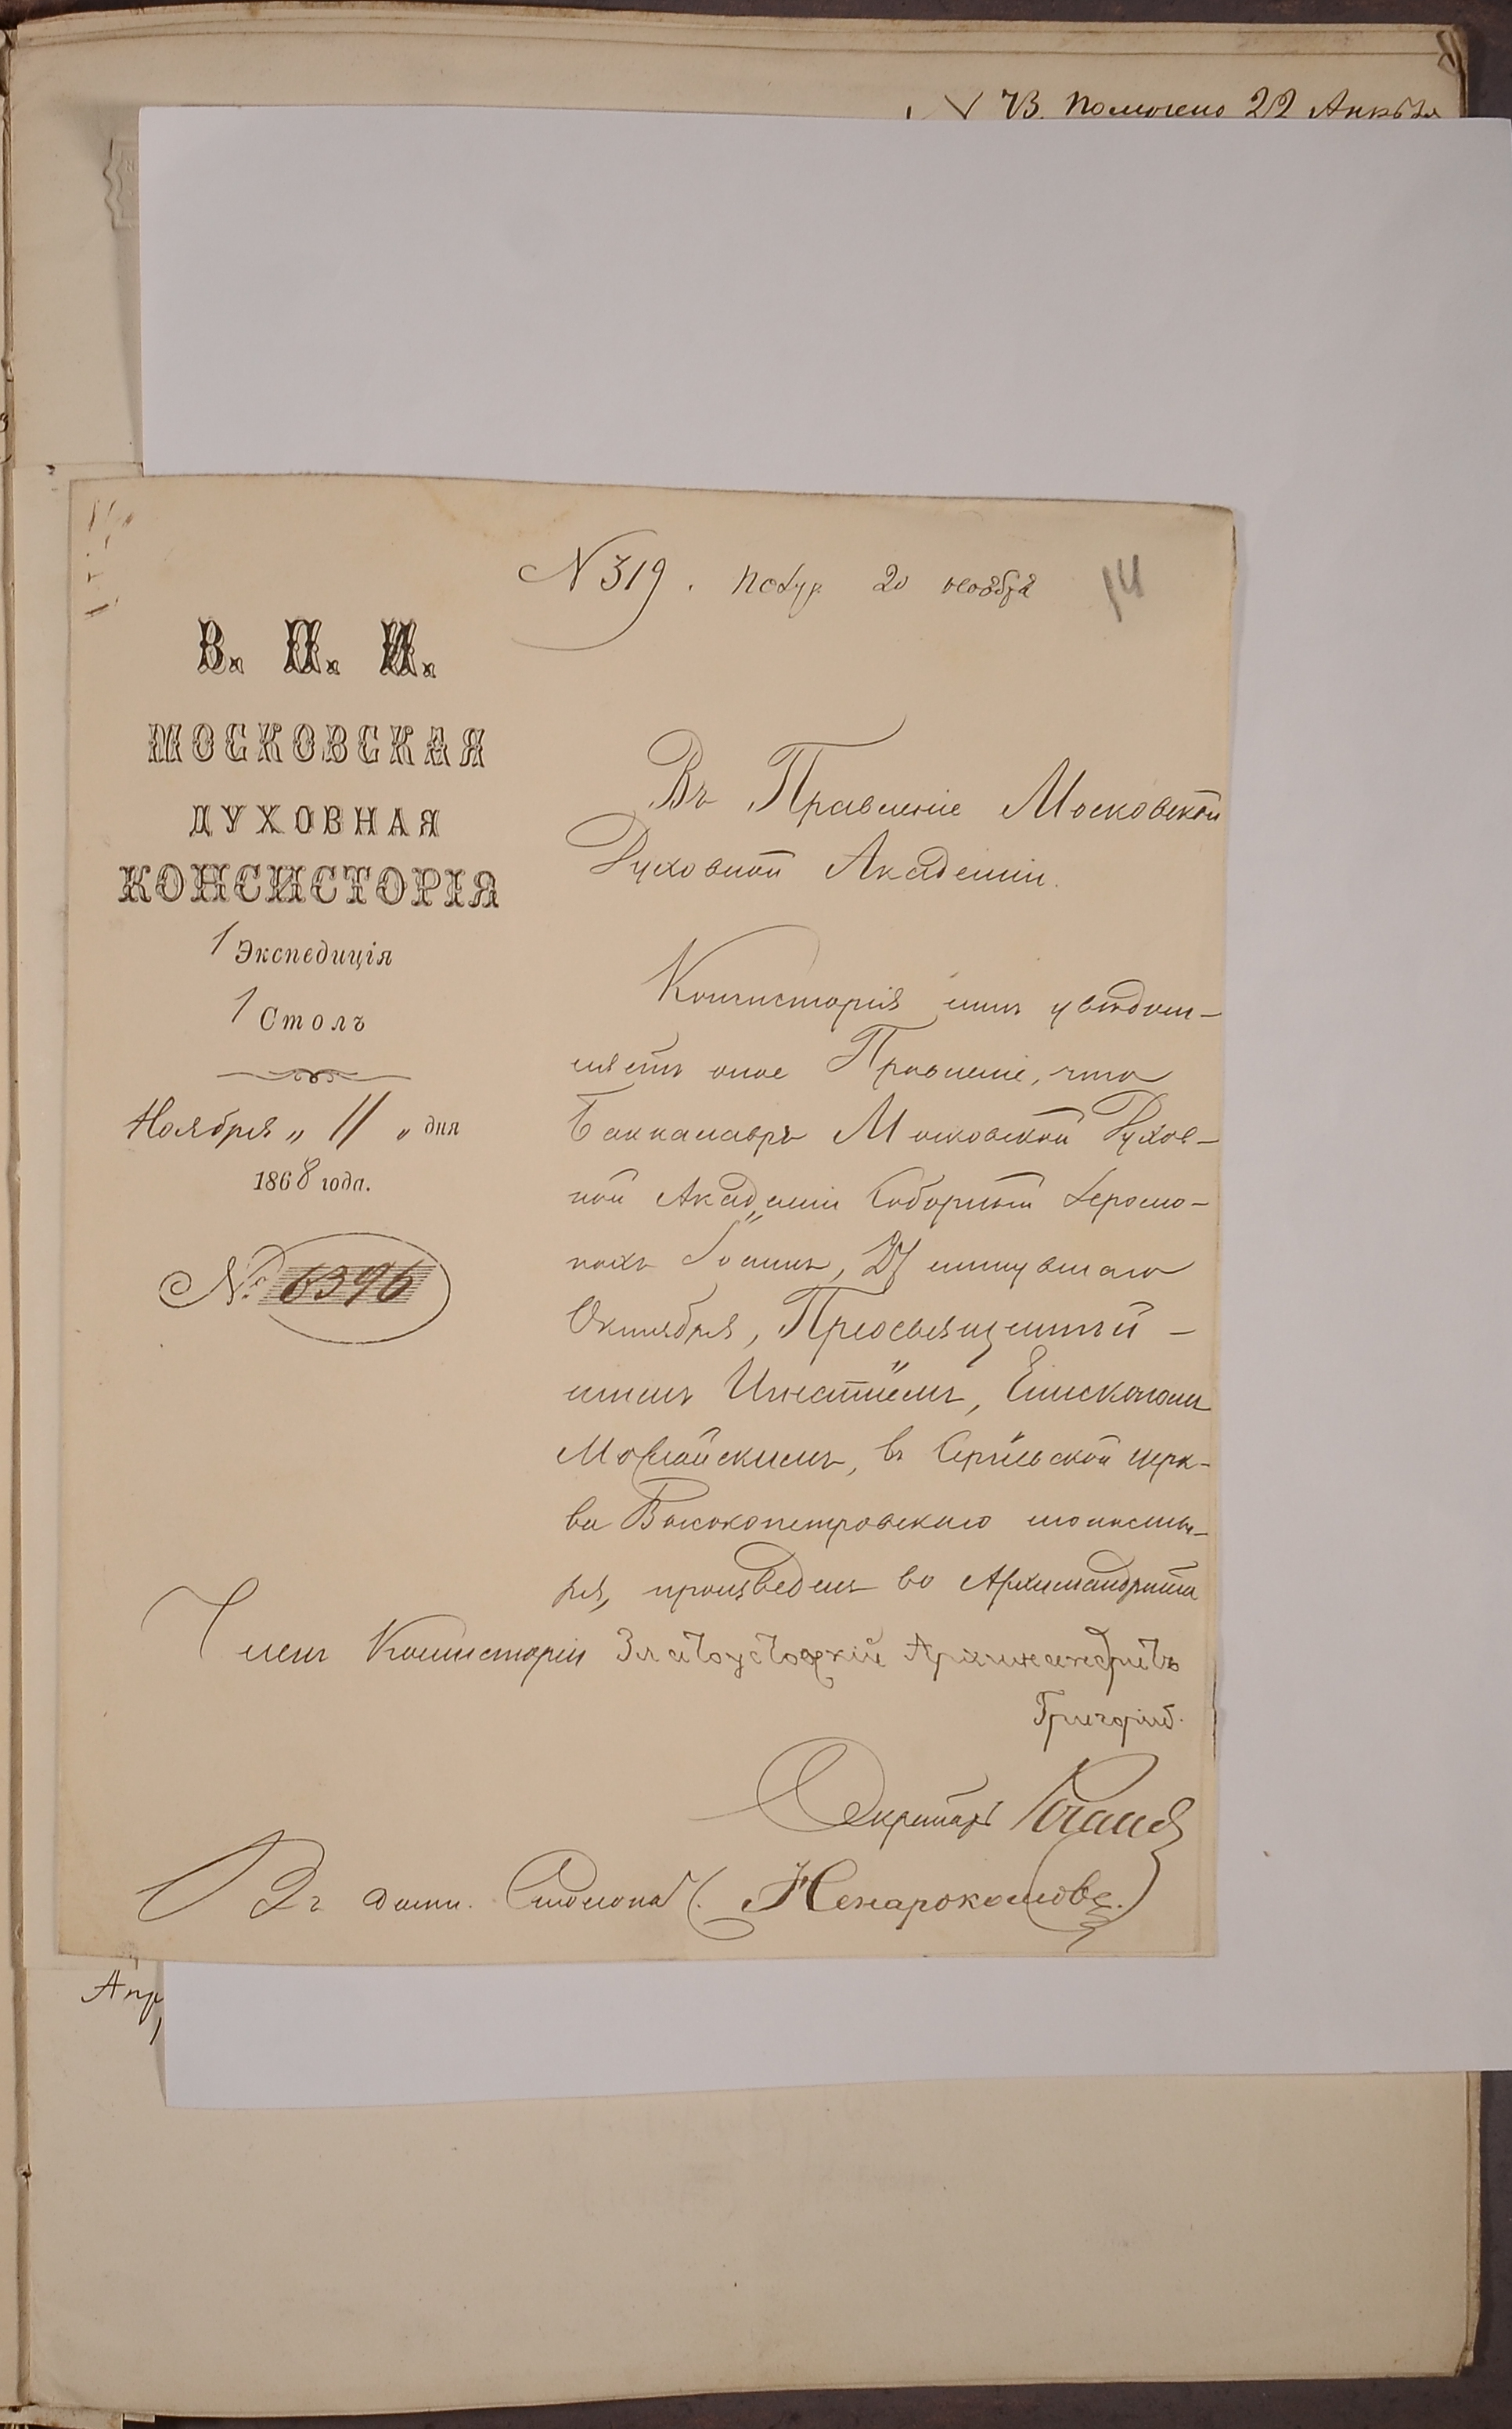 N 73. Получено 22 Апрѣля
N 319. Получ. 20 ноября
14
В. П. И.
МОСКОВСКАЯ
ДУХОВНАЯ
КОНСИСТОРІЯ
1 Экспедиція
1 Столъ
Ноября „ 11 „ дня
1868 года.
№ 6396
Въ Правленіе Московской
Духовной Академіи.
Консисторія симъ увѣдом-
ляетъ оное Правленіе, что
Баккалавръ Московской Духов-
ной Академіи Соборный Іеромо-
нахъ Іоаннъ, минувшаго
Октября, Преосвященнѣй-
шимъ Игнатіемъ, Епископомъ
Можайскимъ, въ Сергіевской церк-
ви Высокопетровскаго монасты-
ря, произведенъ во Архимандрита
Членъ Консисторіи Златоустовскій Архимандритъ
Григорій.
Секретарь
Столонач. Ненарокомовъ.
Апр